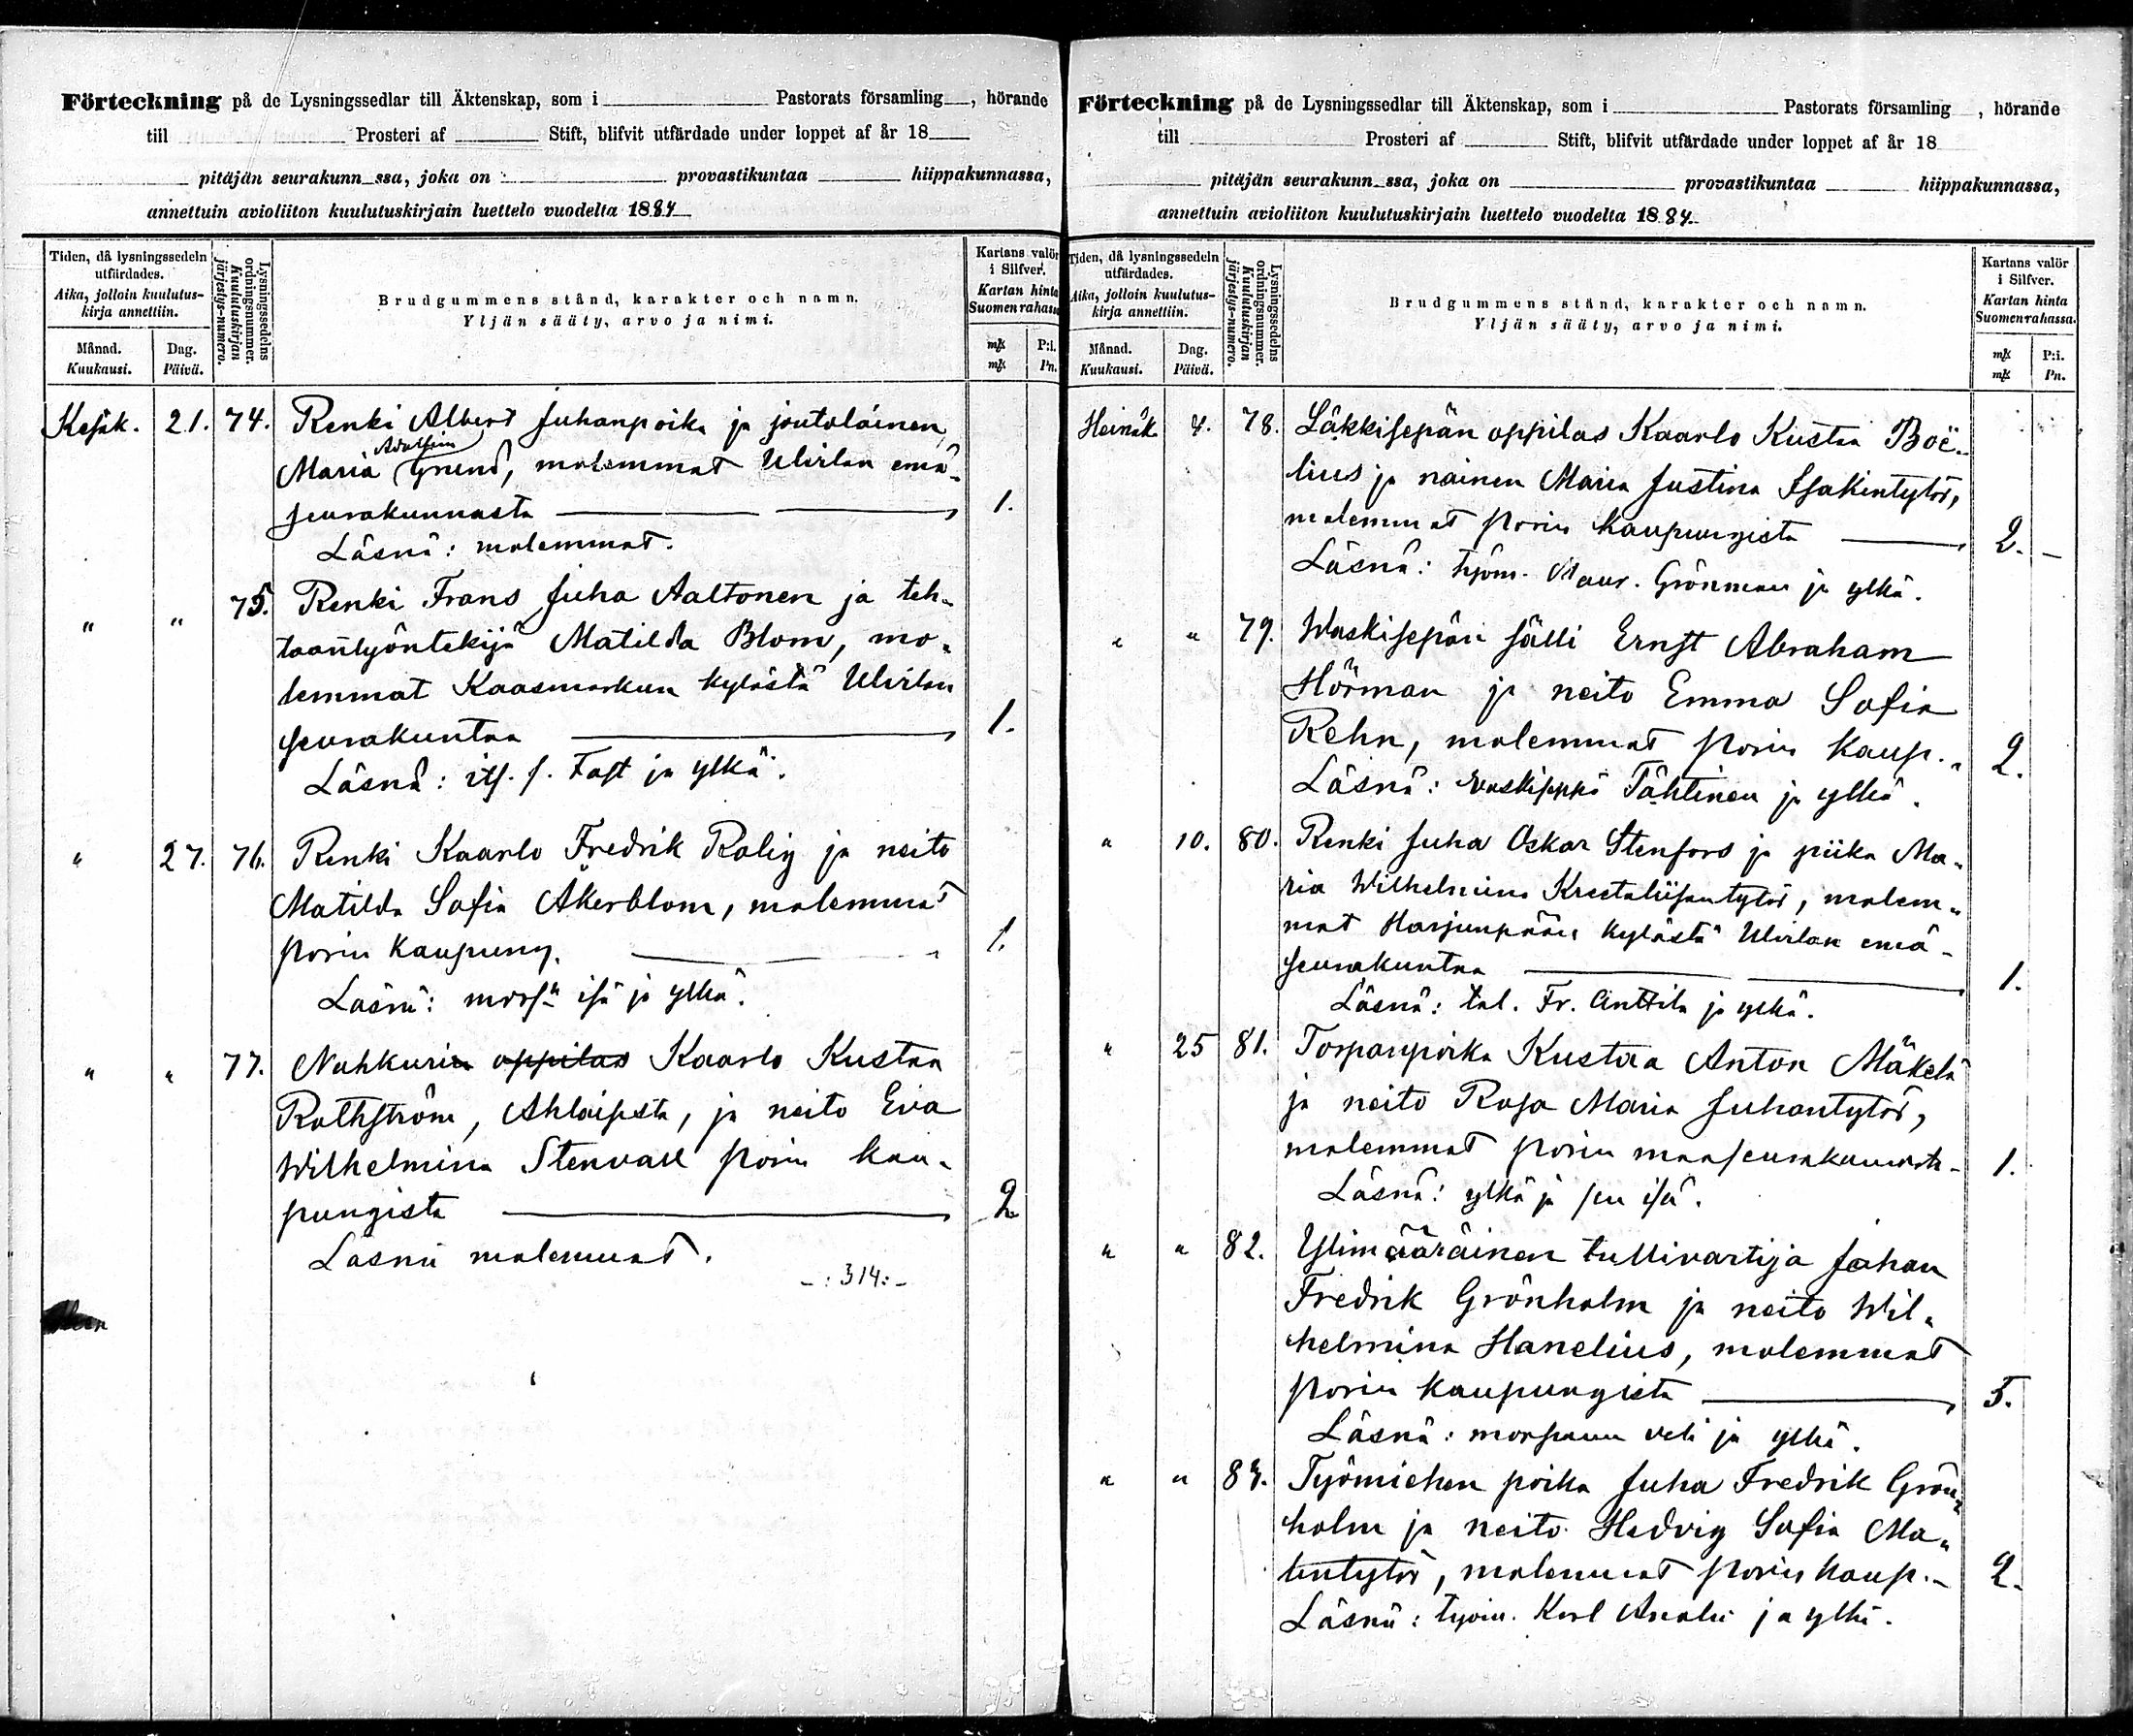 Förteckning på de Lysningssedlar till Äktenskap, som i Pastorats församling, hörande
till Prosteri af Stift, blifvit utfärdade under loppet af år 18
pitäjän seurakunn ssa, joka on provastikuntaa hiippakunnassa,
annettuin avioliiton kuulutuskirjain luettelo vuodelta 1884
Tiden, då lysningssedeln utfärdades.
Aika, jolloin kuulutus-kirja annettiin.
Månad.
Kuukausi.
Dag.
Päivä.
Lysningssedelns ordningsnummer.
Kuulutuskirjan järjestys-numero.
Brudgummens stånd, karakter och namn.
Yljän sääty, arvo ja nimi.
Kartans valör i Silfver.
Kartan hinta Suomen rahassa
mk P:i.
mk Pn.
Kesäk. 21. 74. Renki Albert Juhanpoika ja joutolainen
Adolfiin
Maria Grund, molemmat Ulvilan emä-
seurakunnasta 1.
Läsnä: molemmat.
" " 75. Renki Frans Juha Aaltonen ja teh-
taantyöntekijä Matilda Blom, mo-
lemmat Kaasmarkun kylästä Ulvilan
seurakuntaa 1.
Läsnä: its. s. Fast ja ylkä.
" 27. 76. Renki Kaarlo Fredrik Rolig ja neito
Matilda Sofia Åkerblom, molemmat
Porin kaupung. 1.
Läsnä: mors. isä ja ylkä.
" " 77. Nahkurin oppilas Kaarlo Kustaa
Rothström, Ahlaisista, ja neito Eva
Wilhelmina Stenvall Porin kau-
pungista 2
Läsnä molemmat.
-: 314:-
Förteckning på de Lysningssedlar till Äktenskap, som i Pastorats församling, hörande
till Prosteri af Stift, blifvit utfärdade under loppet af år 18
pitäjän seurakunn ssa, joka on provastikuntaa hiippakunnassa,
annettuin avioliiton kuulutuskirjain luettelo vuodelta 1884.
Tiden, då lysningssedeln utfärdades.
Aika, jolloin kuulutus-kirja annettiin.
Månad.
Kuukausi.
Dag.
Päivä.
Lysningssedelns ordningsnummer.
Kuulutuskirjan järjestys-numero.
Brudgummens stånd, karakter och namn.
Yljän sääty, arvo ja nimi.
Kartans valör i Silfver.
Kartan hinta Suomen rahassa.
mk P:i.
mk Pn.
Heinäk. 4. 78. Läkkisepän oppilas Kaarlo Kustaa Boë-
lius ja nainen Maria Justina Isakintytär,
molemmat Porin kaupungista 2. -
Läsnä: työm. Maur. Grönman ja ylkä.
" " 79. Waskisepän sälli Ernst Abraham
Hörman ja neito Emma Sofia
Rehn, molemmat Porin kaup. 2.
Läsnä: vaskiseppä Tähtinen ja ylkä.
" 10. 80. Renki Juha Oskar Stenfors ja piika Ma-
ria Wilhelmina Kreetaliisantytär, molem-
mat Harjunpään kylästä Ulvilan emä-
seurakuntaa 1.
Läsnä: tal. Fr. Anttila ja ylkä.
" 25 81. Torpanpoika Kustaa Anton Mäkelä
ja neito Rosa Maria Juhantytär,
molemmat Porin maaseurakunnasta 1.
Läsnä: ylkä ja sen isä.
" " 82. Ylimääräinen tullivartija Johan
Fredrik Grönholm ja neito Wil-
helmina Hanelius, molemmat
Porin kaupungista 5.
Läsnä: morsiamen veli ja ylkä.
" " 83. Työmiehen poika Juha Fredrik Grön-
holm ja neito Hedvig Sofia Ma-
tintytär, molemmat Porin kaup. 2.
Läsnä: työm. Karl ja ylkä.